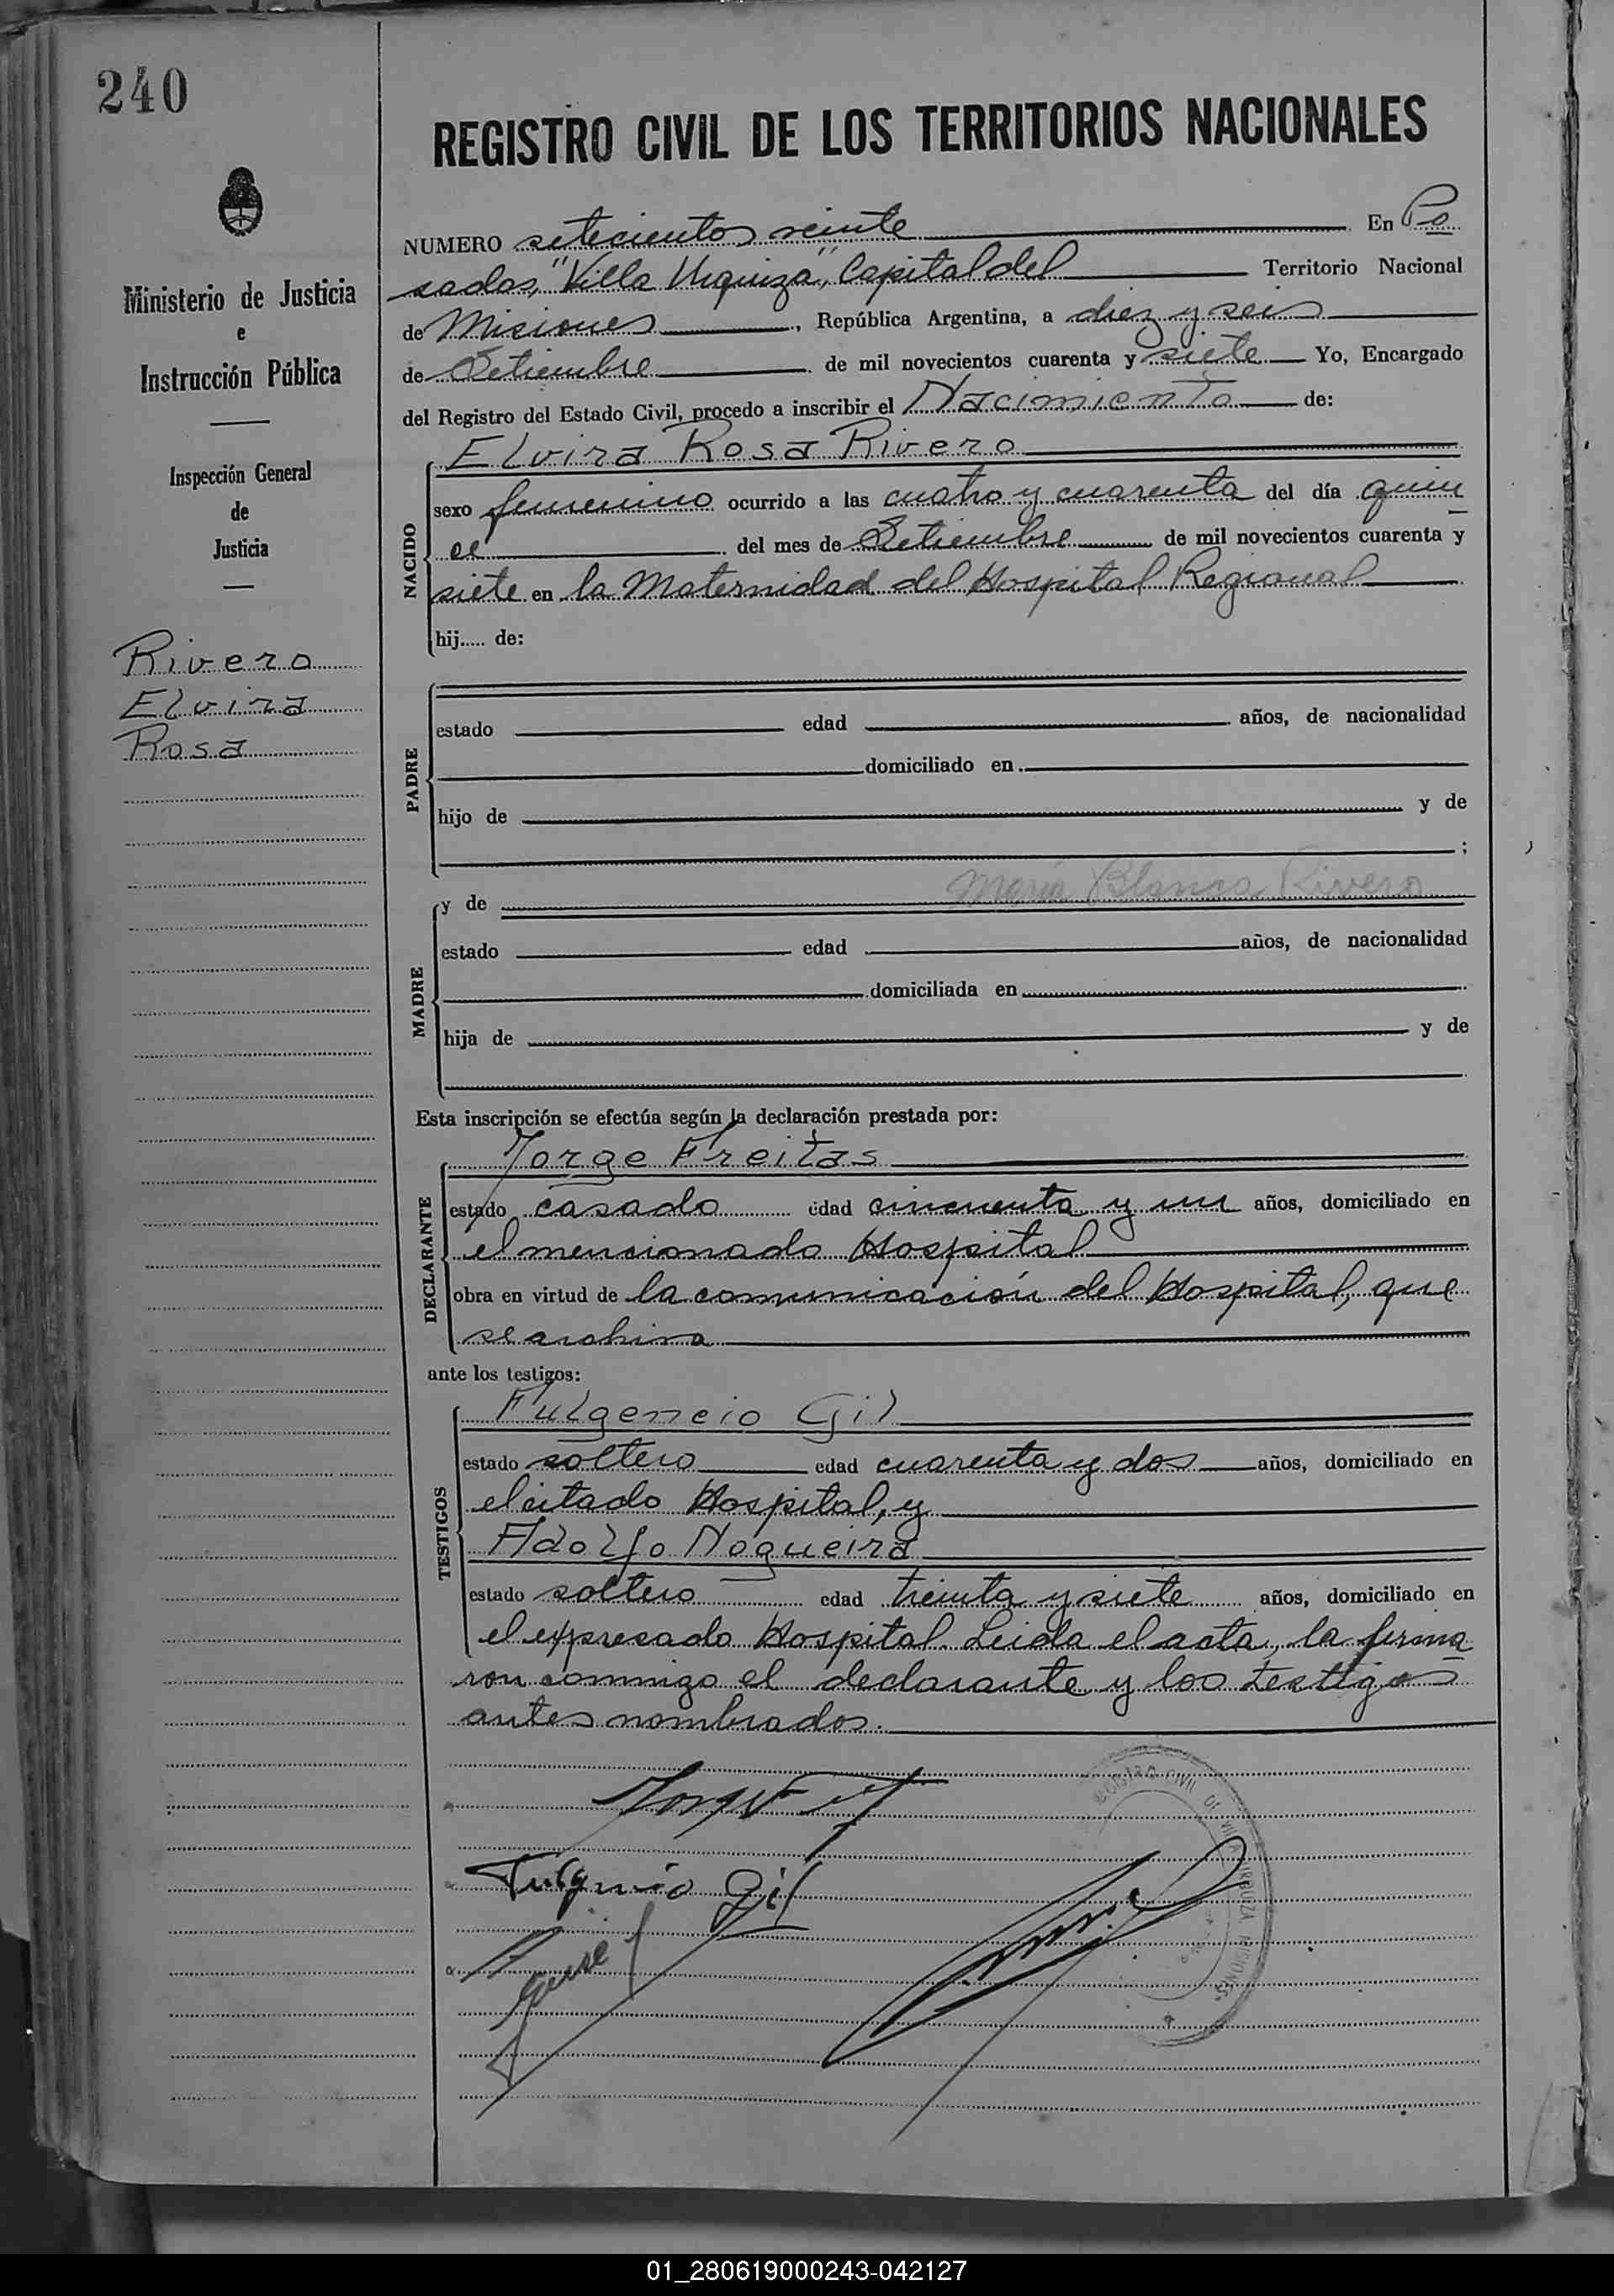 240
REGISTRO CIVIL DE LOS TERRITORIOS NACIONALES
Ministerio de Justicia
e
Instrucción Pública
Inspección General
de
Justicia
Rivero
Elvira
Rosa
NUMERO setecientos veinte En Po
sadas, "Villa Urquiza", Capital del Territorio Nacional
de Misiones, República Argentina, a diez y seis
de Setiembre de mil novecientos cuarenta y siete Yo, Encargado
del Registro del Estado Civil, procedo a inscribir el Nacimiento de:
NACIDO
Elvira Rosa Rivero
sexo femenino ocurrido a las cuatro y cuarenta del día quin
ce del mes de Setiembre de mil novecientos cuarenta y
siete en la Maternidad del Hospital Regional
hij..... de:
PADRE
estado edad años, de nacionalidad
domiciliado en
hijo de y de
;
MADRE
y de María Blanca Rivero
estado edad años, de nacionalidad
domiciliada en
hija de y de
Esta inscripción se efectúa según la declaración prestada por:
DECLARANTE
Jorge Freitas
estado casado edad cincuenta y un años, domiciliado en
el mencionado Hospital
obra en virtud de la comunicación del Hospital, que
se archiva
ante los testigos:
TESTIGOS
Fulgencio Gil
estado soltero edad cuarenta y dos años, domiciliado en
el citado Hospital, y
Adolfo Nogueira
estado soltero edad treinta y siete años, domiciliado en
el expresado Hospital. Leida el acta, la firma
ron conmigo el declarante y los testigos
antes nombrados.
Jorge
Fulgencio Gil
REGISTRO CIVIL DE VILLA URQUIZA MISIONES
01_280619000243-042127